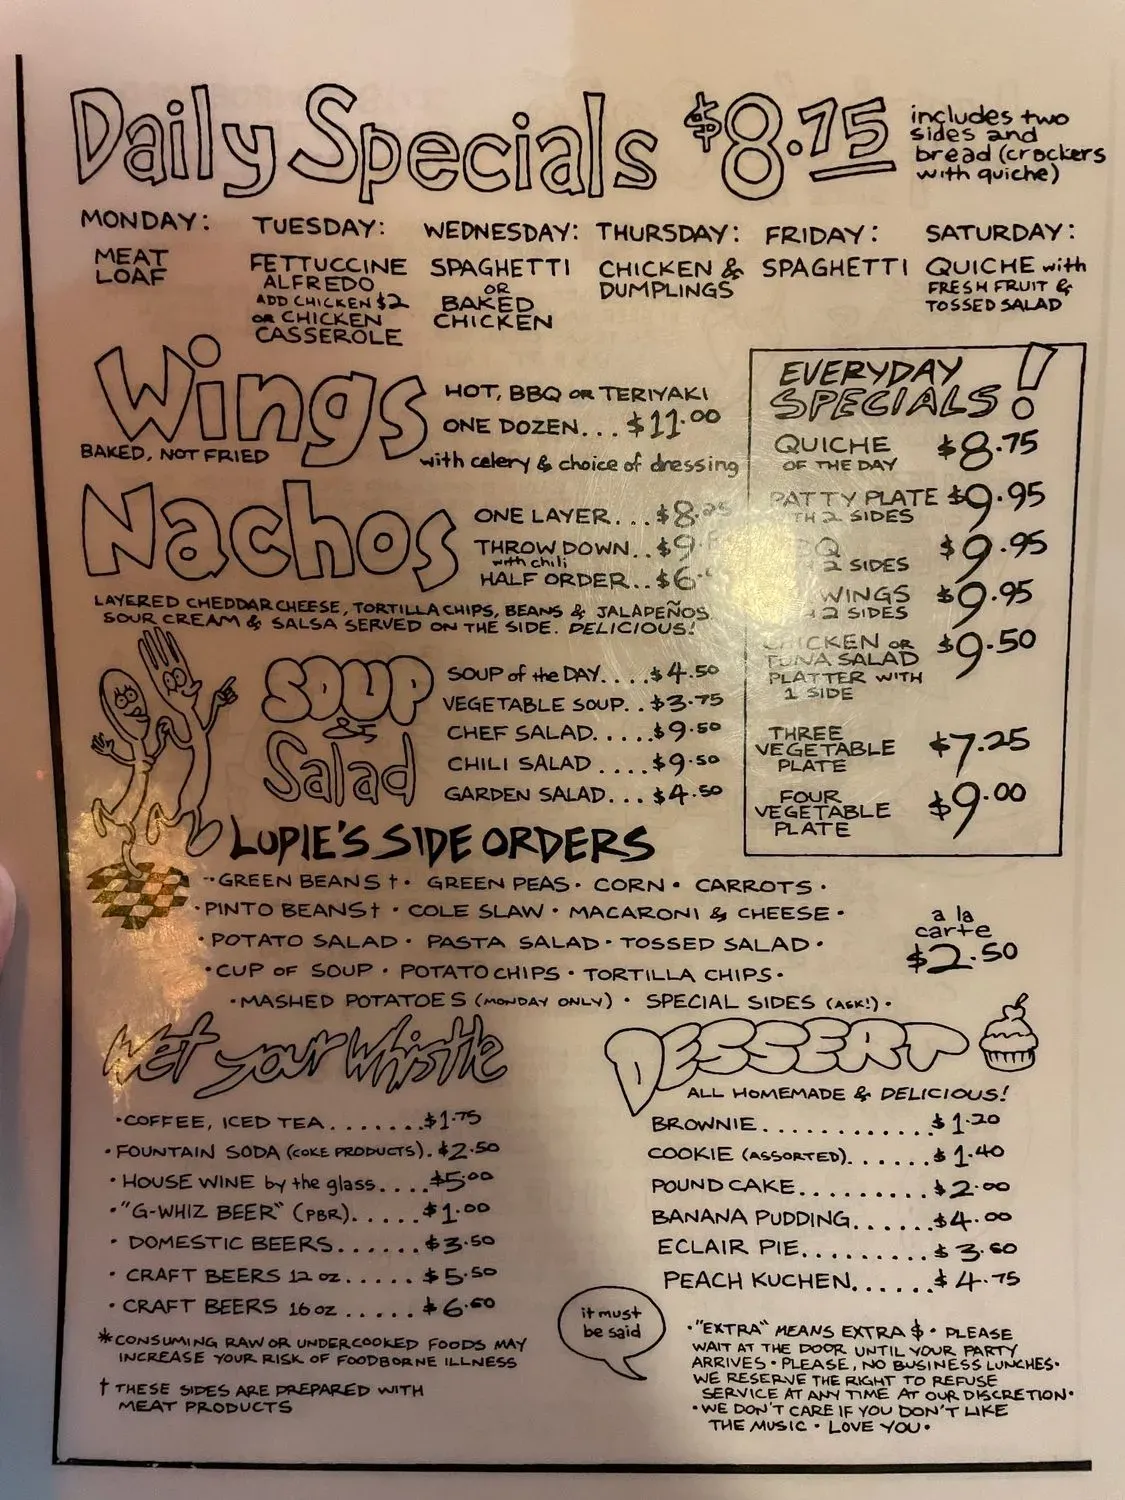 Daily Specials $8.75
includes two
sides and
bread (crackers
with quiche)
MONDAY:
MEAT
LOAF
TUESDAY:
FETTUCCINE
ALFREDO
ADD CHICKEN $2
OR CHICKEN
CASSEROLE
WEDNESDAY:
SPAGHETTI
OR
BAKED
CHICKEN
THURSDAY:
CHICKEN &
DUMPLINGS
FRIDAY:
SPAGHETTI
SATURDAY:
QUICHE with
FRESH FRUIT &
TOSSED SALAD
Wings
BAKED, NOT FRIED
HOT, BBQ OR TERIYAKI
ONE DOZEN... $11.00
with celery & choice of dressing
Nachos
ONE LAYER... $8.25
THROW DOWN.. $9.
with chili
HALF ORDER.. $6.
LAYERED CHEDDAR CHEESE, TORTILLA CHIPS, BEANS & JALAPEÑOS
SOUR CREAM & SALSA SERVED ON THE SIDE. DELICIOUS!
EVERYDAY
SPECIALS!
QUICHE $8.75
OF THE DAY
PATTY PLATE $9.95
2 SIDES
$9.95
2 SIDES
WINGS $9.95
2 SIDES
CHICKEN OR $9.50
TUNA SALAD
PLATTER WITH
1 SIDE
THREE
VEGETABLE $7.25
PLATE
FOUR
VEGETABLE $9.00
PLATE
SOUP
&
Salad
SOUP of the DAY.... $4.50
VEGETABLE SOUP.. $3.75
CHEF SALAD..... $9.50
CHILI SALAD .... $9.50
GARDEN SALAD... $4.50
LUPIE'S SIDE ORDERS
· GREEN BEANS † · GREEN PEAS · CORN · CARROTS ·
· PINTO BEANS † · COLE SLAW · MACARONI & CHEESE ·
· POTATO SALAD · PASTA SALAD · TOSSED SALAD ·
· CUP OF SOUP · POTATO CHIPS · TORTILLA CHIPS ·
· MASHED POTATOES (MONDAY ONLY) · SPECIAL SIDES (ASK!) ·
a la
carte
$2.50
Wet your Whistle
· COFFEE, ICED TEA.......$1.75
· FOUNTAIN SODA (COKE PRODUCTS). $2.50
· HOUSE WINE by the glass.... $5.00
· "G-WHIZ BEER" (PBR)..... $1.00
· DOMESTIC BEERS...... $3.50
· CRAFT BEERS 12 oz ..... $5.50
· CRAFT BEERS 16 oz ..... $6.50
* CONSUMING RAW OR UNDERCOOKED FOODS MAY
INCREASE YOUR RISK OF FOODBORNE ILLNESS
† THESE SIDES ARE PREPARED WITH
MEAT PRODUCTS
DESSERT
ALL HOMEMADE & DELICIOUS!
BROWNIE............ $1.20
COOKIE (ASSORTED)...... $1.40
POUND CAKE......... $2.00
BANANA PUDDING...... $4.00
ECLAIR PIE......... $3.60
PEACH KUCHEN...... $4.75
it must
be said
· "EXTRA" MEANS EXTRA $ · PLEASE
WAIT AT THE DOOR UNTIL YOUR PARTY
ARRIVES · PLEASE, NO BUSINESS LUNCHES ·
WE RESERVE THE RIGHT TO REFUSE
SERVICE AT ANY TIME AT OUR DISCRETION ·
· WE DON'T CARE IF YOU DON'T LIKE
THE MUSIC · LOVE YOU ·